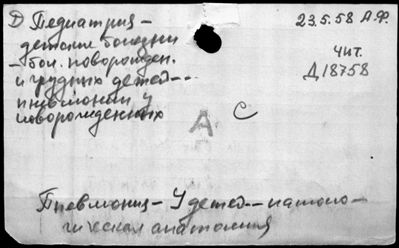 Д Педиатрия -
детские болезни
- бол. новорожден.
и грудных детей --
пневмонии у
новорожденных
23.5.58 А.Ф.
Чит.
Д18758
А С
Пневмония - У детей -- патоло-
гическая анатомия